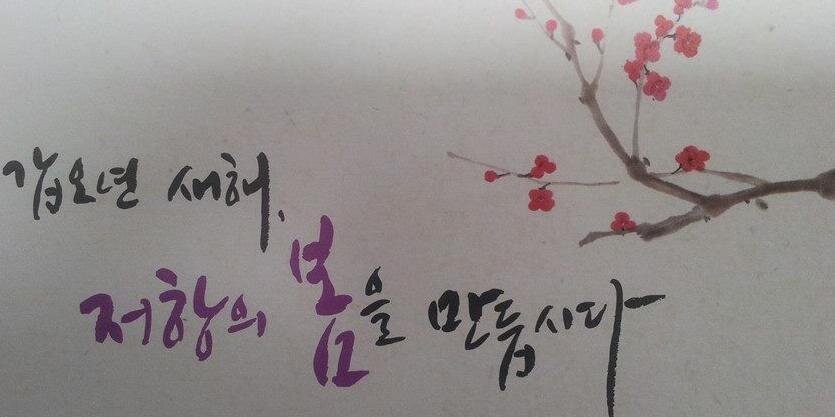 갑오년 새해,
저항의 봄을 만듭시다